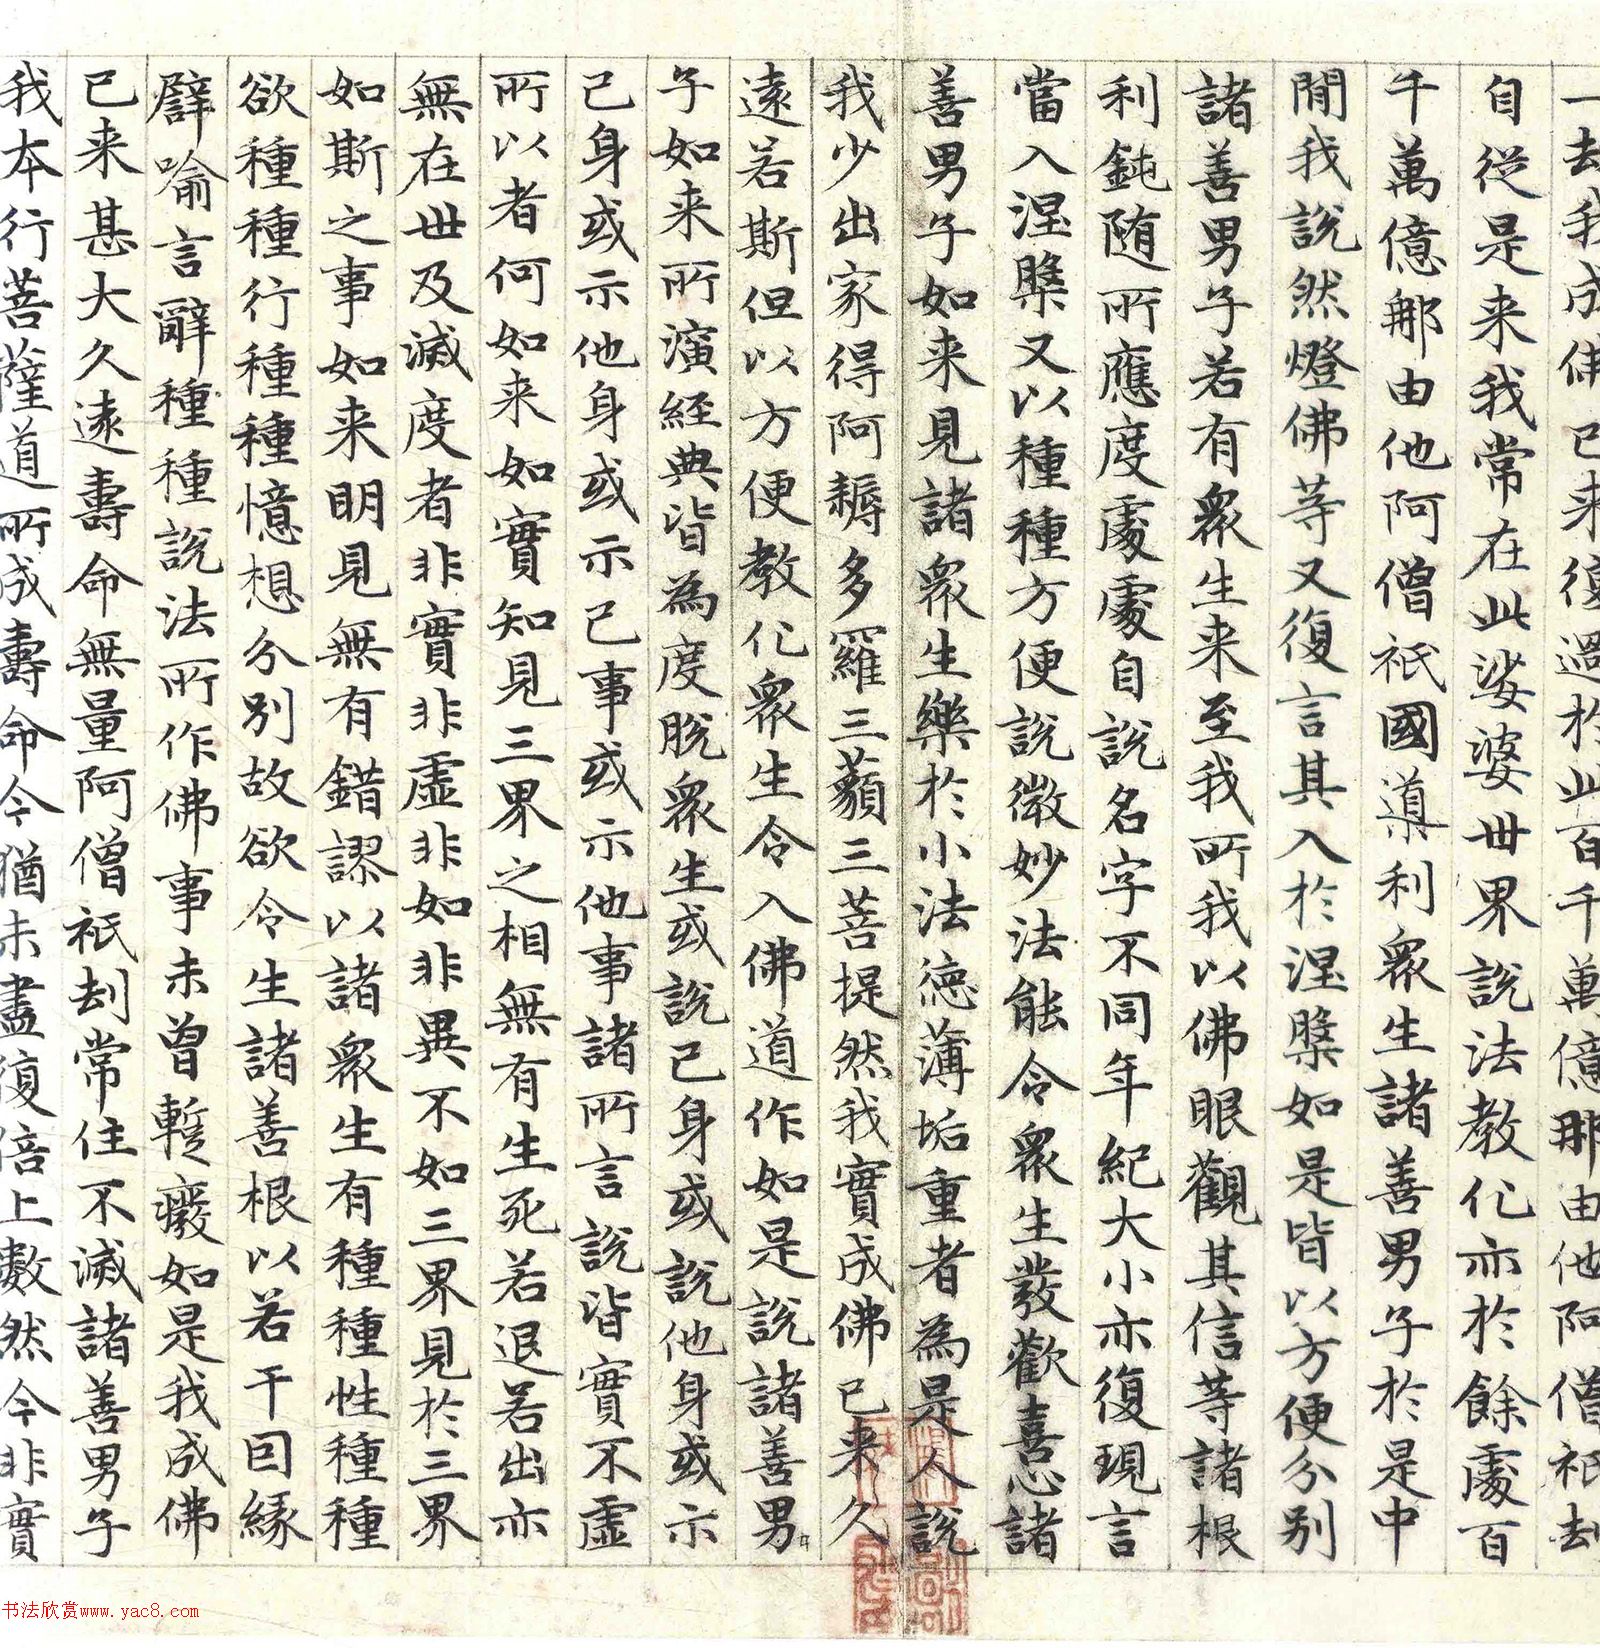 一劫我成佛已来復過於此百千萬億那由他阿僧祇劫
自從是来我常在此娑婆世界說法教化亦於餘處百
千萬億那由他阿僧祇國導利衆生諸善男子於是中
閒我說然燈佛等又復言其入於涅槃如是皆以方便分別
諸善男子若有衆生来至我所我以佛眼觀其信等諸根
利鈍随所應度處處自說名字不同年紀大小亦復現言
當入涅槃又以種種方便說微妙法能令衆生發歡喜心諸
善男子如来見諸衆生樂於小法德薄垢重者為是人說
我少出家得阿耨多羅三藐三菩提然我實成佛已来久
遠若斯但以方便教化衆生令入佛道作如是說諸善男
子如来所演經典皆為度脫衆生或說己身或說他身或示
己身或示他身或示己事或示他事諸所言說皆實不虛
所以者何如来如實知見三界之相無有生死若退若出亦
無在世及滅度者非實非虛非如非異不如三界見於三界
如斯之事如来明見無有錯謬以諸衆生有種種性種種
欲種種行種種憶想分別故欲令生諸善根以若干因緣
譬喻言辭種種說法所作佛事未曾暫廢如是我成佛
已来甚大久遠壽命無量阿僧祇劫常住不滅諸善男子
我本行菩薩道所成壽命今猶未盡復倍上數然今非實
书法欣赏www.yac8.com